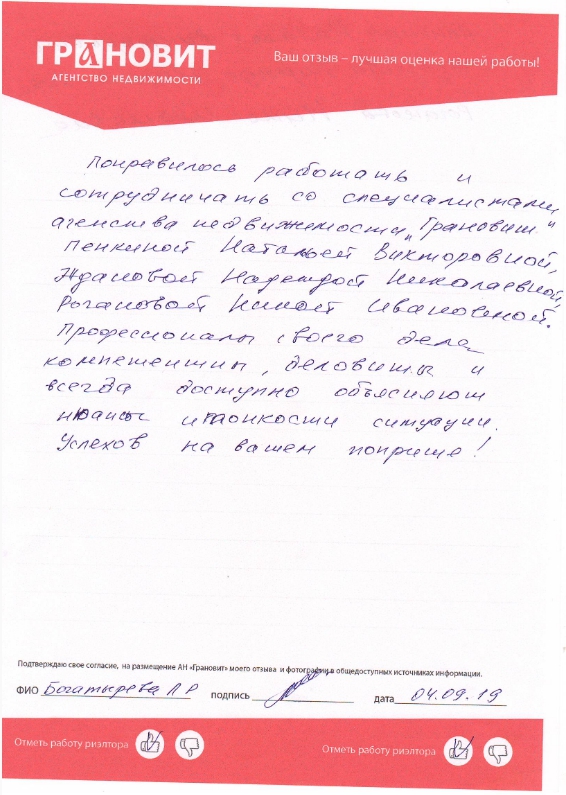 ГРАНОВИТ
АГЕНТСТВО НЕДВИЖИМОСТИ
Ваш отзыв – лучшая оценка нашей работы!
Понравилось работать и
сотрудничать со специалистами
агенства недвижемости „Грановит"
Пенкиной Натальей Викторовной,
Ждановой Надеждой Николаевной,
Рогановой Ниной Ивановной.
Профессионалы своего дела
компетентны, деловиты и
всегда доступно объясняют
нюансы и тонкости ситуации.
Успехов на вашем поприще!
Подтверждаю свое согласие, на размещение АН «Грановит» моего отзыва и фотографии в общедоступных источниках информации.
ФИО Богатырева Л Р подпись дата 04.09.19
Отметь работу риэлтора
Отметь работу риэлтора